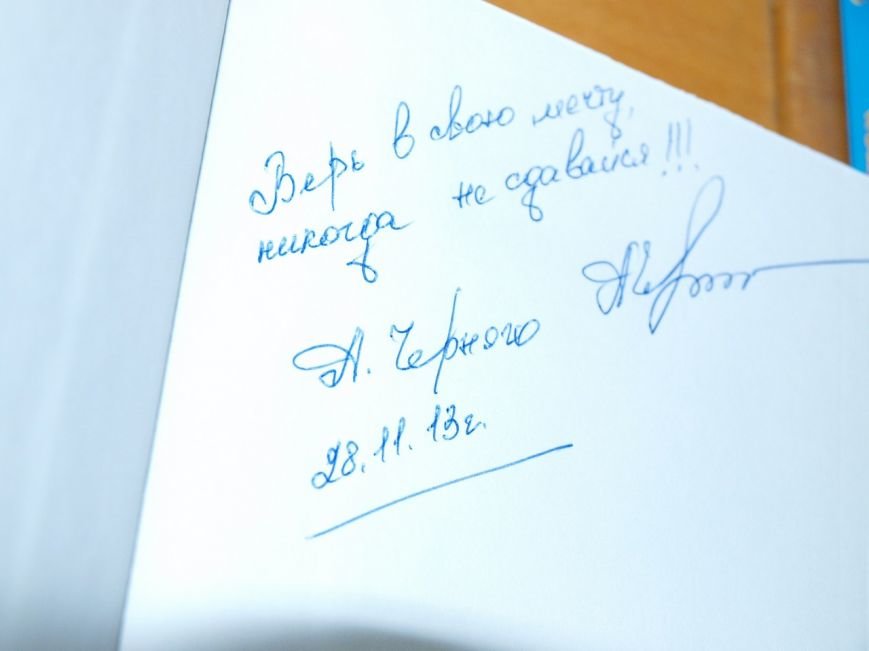 Верь в свою мечту,
никогда не сдавайся!!!
А. Черняго
28.11.13г.